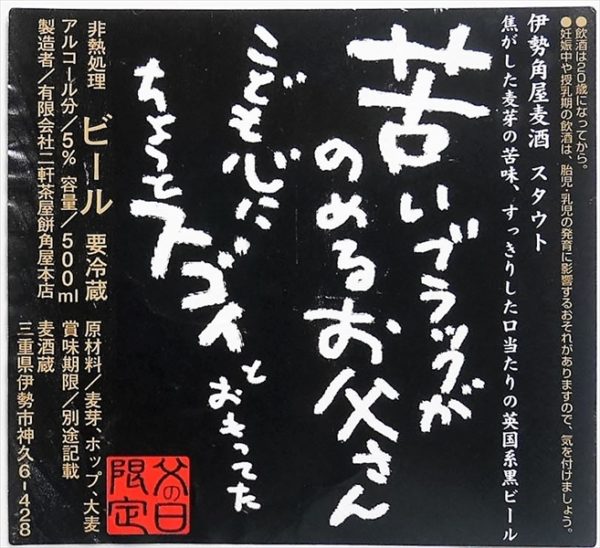 ●飲酒は20歳になってから。
●妊娠中や授乳期の飲酒は、胎児・乳児の発育に影響するおそれがありますので、気を付けましょう。
伊勢角屋麦酒 スタウト
焦がした麦芽の苦味、すっきりした口当たりの英国系黒ビール
苦いブラックが
のめるお父さん
こども心に
ちょっとスゴイとおもってた
非熱処理 ビール 要冷蔵
アルコール分/5% 容量/500ml
製造者/有限会社二軒茶屋餅角屋本店
原材料/麦芽、ホップ、大麦
賞味期限/別途記載
麦酒蔵
三重県伊勢市神久6-428
父の日
限定